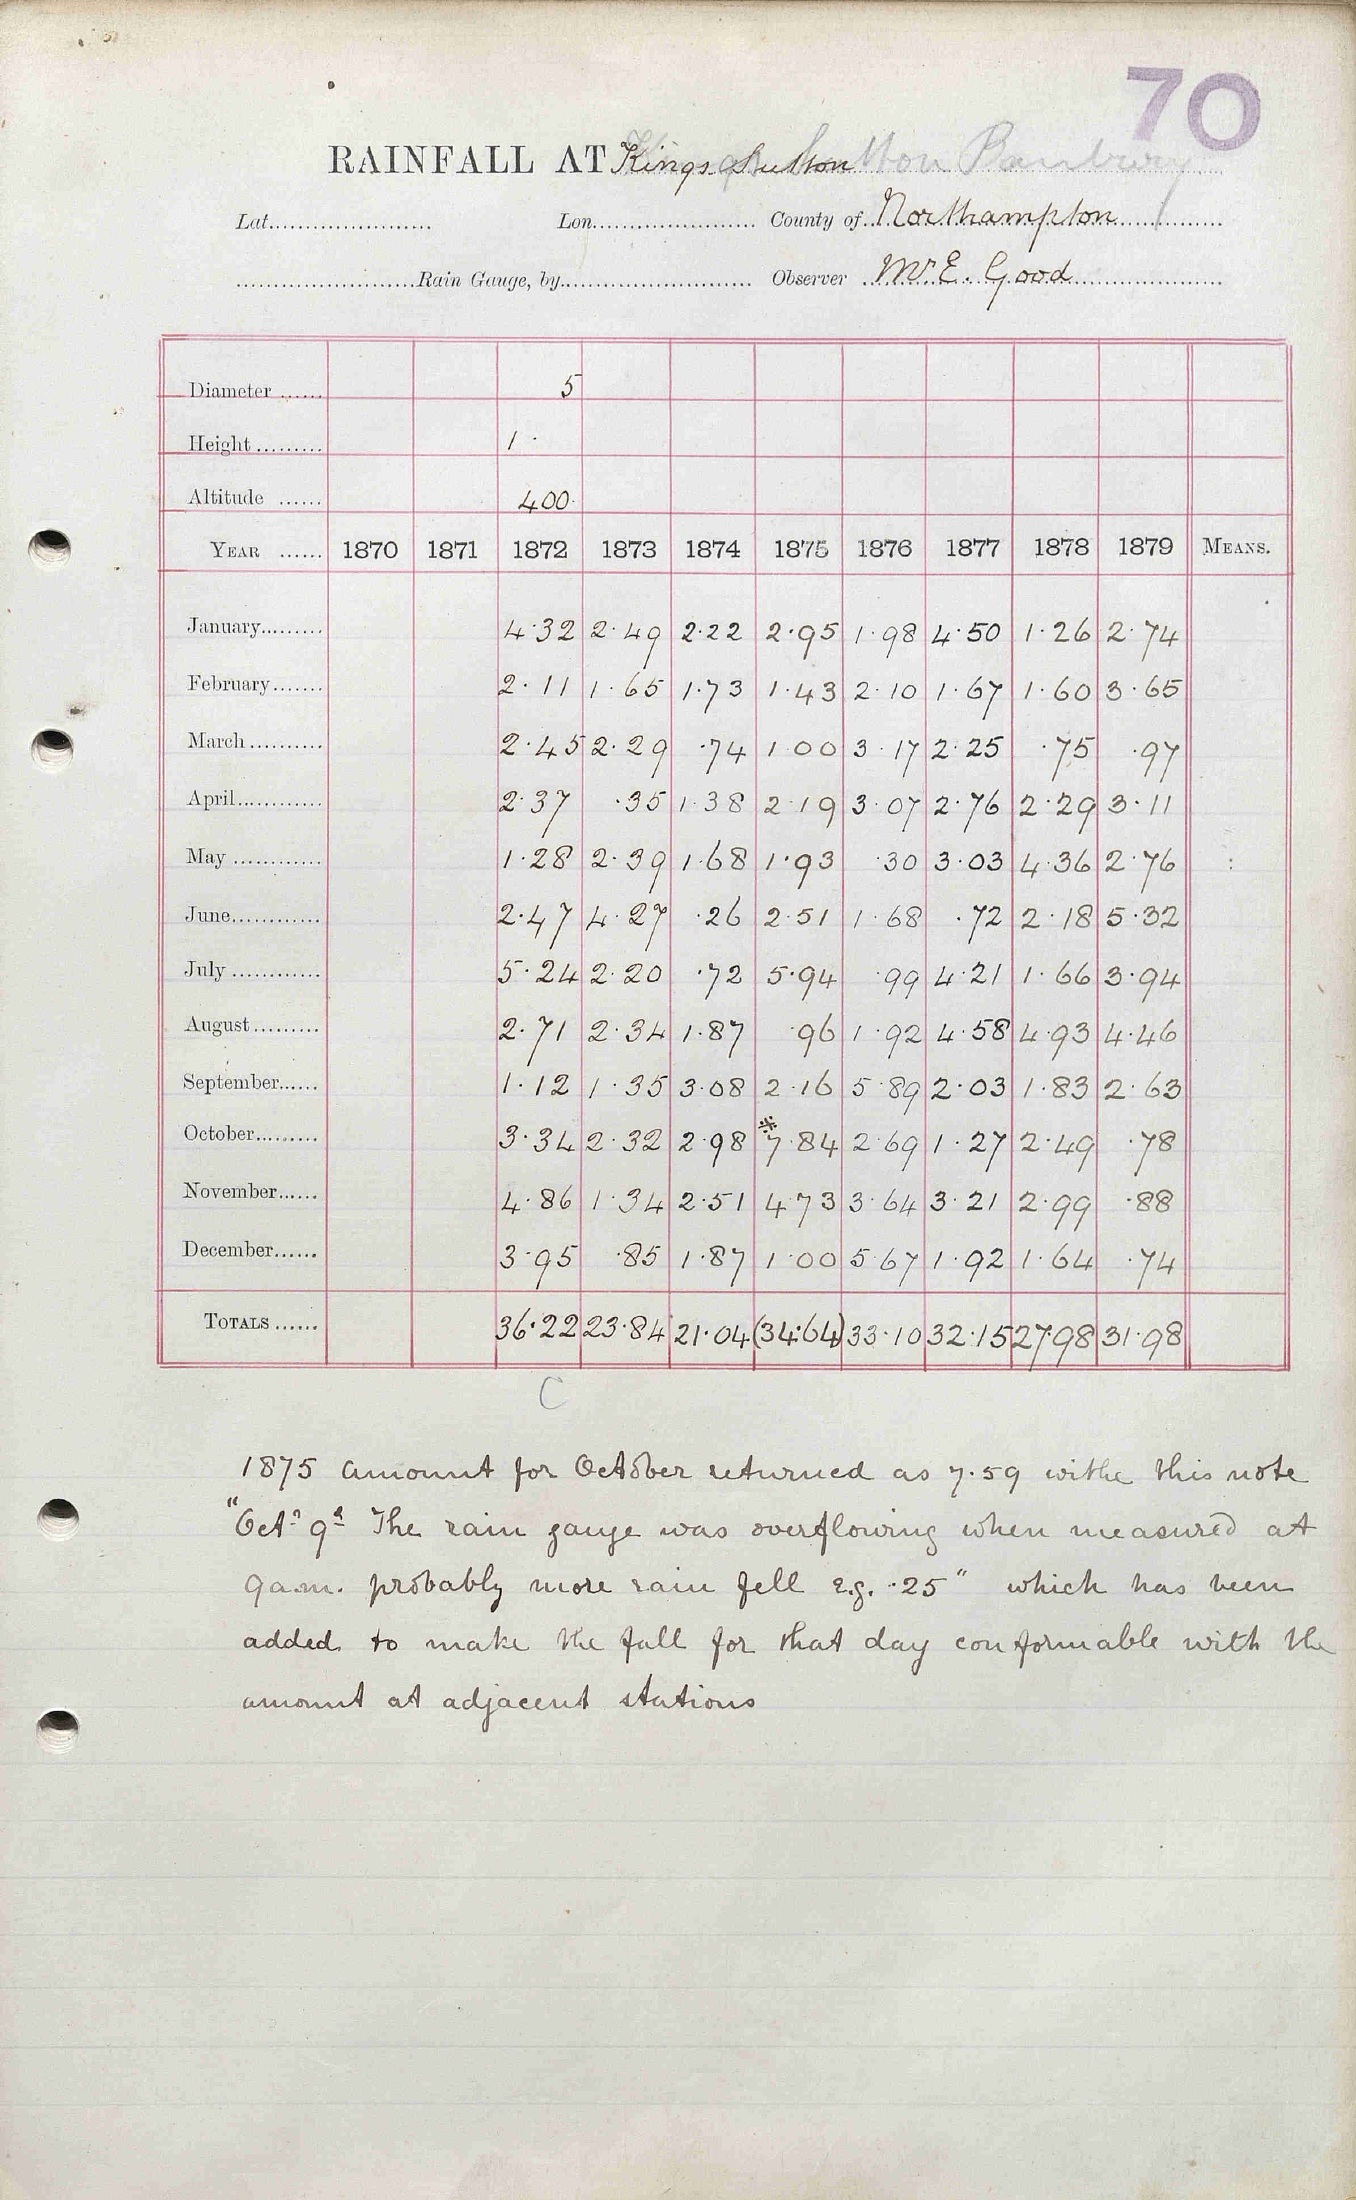 70
RAINFALL AT Kings Sutton Banbury
Lat...................... Lon...................... County of Northampton
.........................Rain Gauge, by.......................... Observer Mr E. Good
Diameter ...... 5
Height ......... 1 .
Altitude ...... 400
YEAR ...... 1870 1871 1872 1873 1874 1875 1876 1877 1878 1879 MEANS.
January......... 4.32 2.49 2.22 2.95 1.98 4.50 1.26 2.74
February....... 2.11 1.65 1.73 1.43 2.10 1.67 1.60 3.65
March .......... 2.45 2.29 .74 1.00 3.17 2.25 .75 .97
April............ 2.37 .35 1.38 2.19 3.07 2.76 2.29 3.11
May ............ 1.28 2.39 1.68 1.93 .30 3.03 4.36 2.76
June............ 2.47 4.27 .26 2.51 1.68 .72 2.18 5.32
July ............ 5.24 2.20 .72 5.94 .99 4.21 1.66 3.94
August......... 2.71 2.34 1.87 .96 1.92 4.58 4.93 4.46
September...... 1.12 1.35 3.08 2.16 5.89 2.03 1.83 2.63
October......... 3.34 2.32 2.98 ※7.84 2.69 1.27 2.49 .78
November...... 4.86 1.34 2.51 4.73 3.64 3.21 2.99 .88
December...... 3.95 .85 1.87 1.00 5.67 1.92 1.64 .74
TOTALS ...... 36.22 23.84 21.04 (34.64) 33.10 32.15 27.98 31.98
C
1875 amount for October returned as 7.59 withe this note
"Octr 9d The rain gauge was overflowing when measured at
9 a.m. probably more rain fell e.g. .25" which has been
added to make the fall for that day conformable with the
amount at adjacent stations